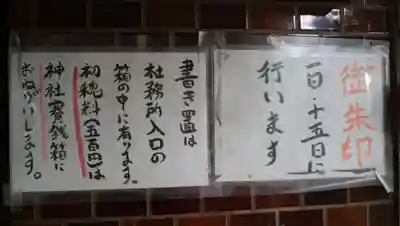 御朱印
一日・十五日に
行います
書き置は
社務所入口の
箱の中に有ります。
初穂料(五百円)は
神社賽銭箱に
お願いします。